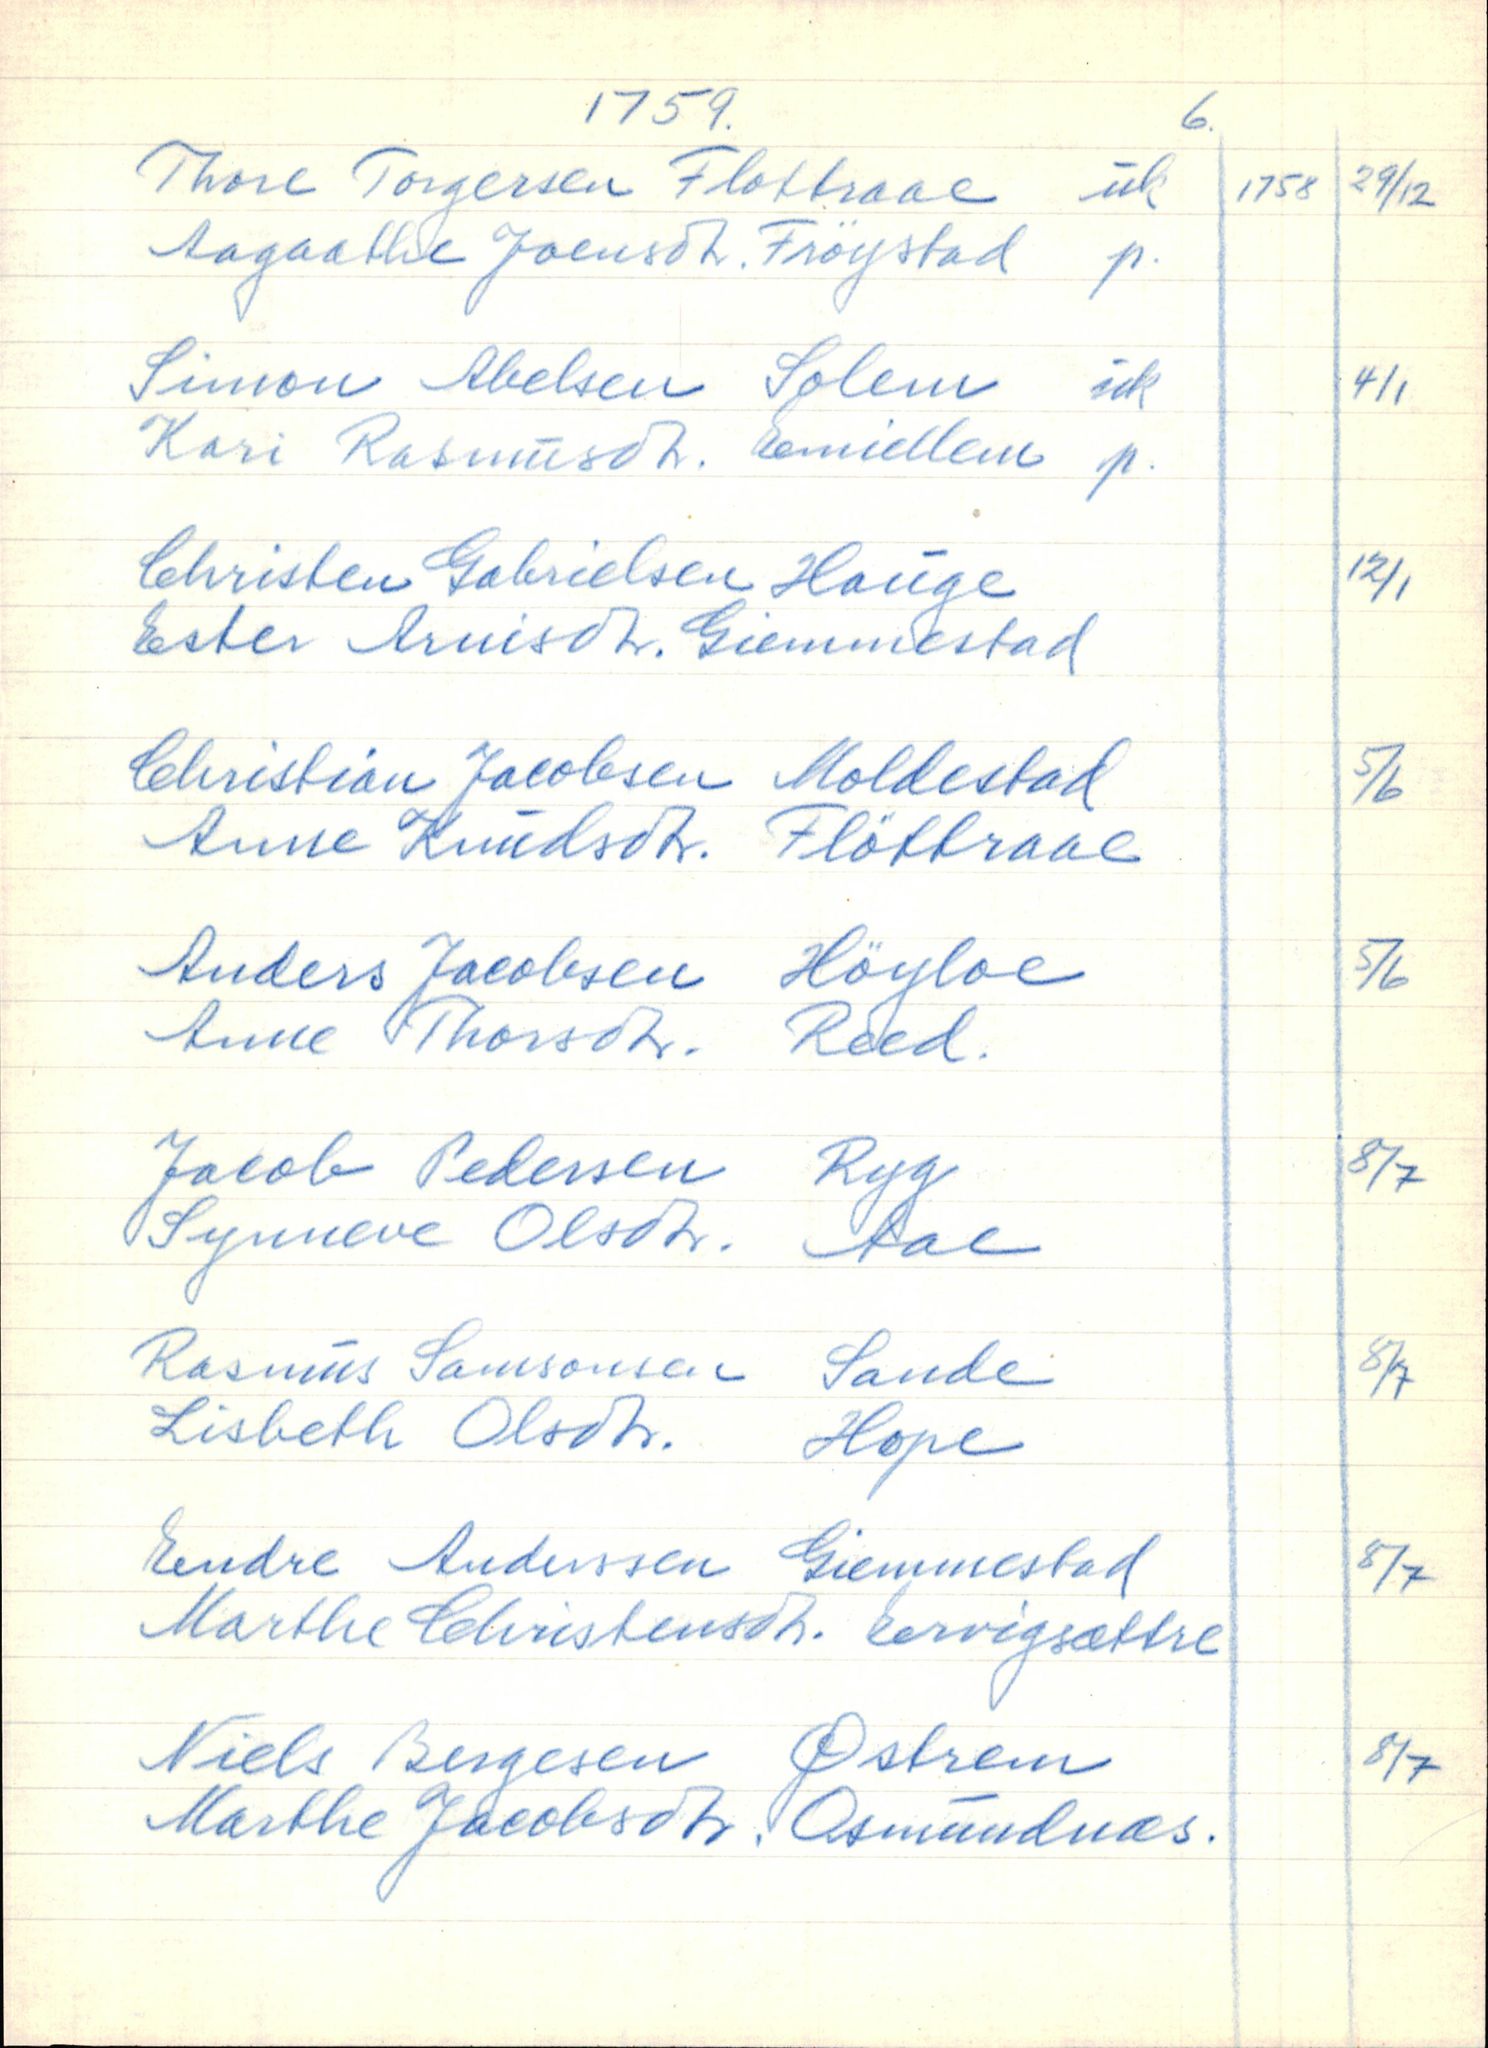 1759. 6.
Thore Torgersen Flottraae ūk 1758 29/12
Aagaathe Joensdtr. Fröystad p.
Simon Abelsen Solem ūk 4/1
Kari Rasmūsdtr. Eemiellem p.
Christen Gabrielsen Haūge 12/1
Ester Arnisdtr. Giemmestad
Christian Jacobsen Moldestad 5/6
Anne Knūdsdtr. Flöttraae
Anders Jacobsen Höyloe 5/6
Anne Thorsdtr. Reed.
Jacob Pedersen Ryg 8/7
Synneve Olsdtr. Aae
Rasmūs Samsonsen Sande 8/7
Lisbeth Olsdtr. Hope
Endre Anderssen Giemmestad 8/7
Marthe Christensdtr. Eervigsættre
Niels Bergesen Østrem 8/7
Marthe Jacobsdtr. Osmūndnæs.